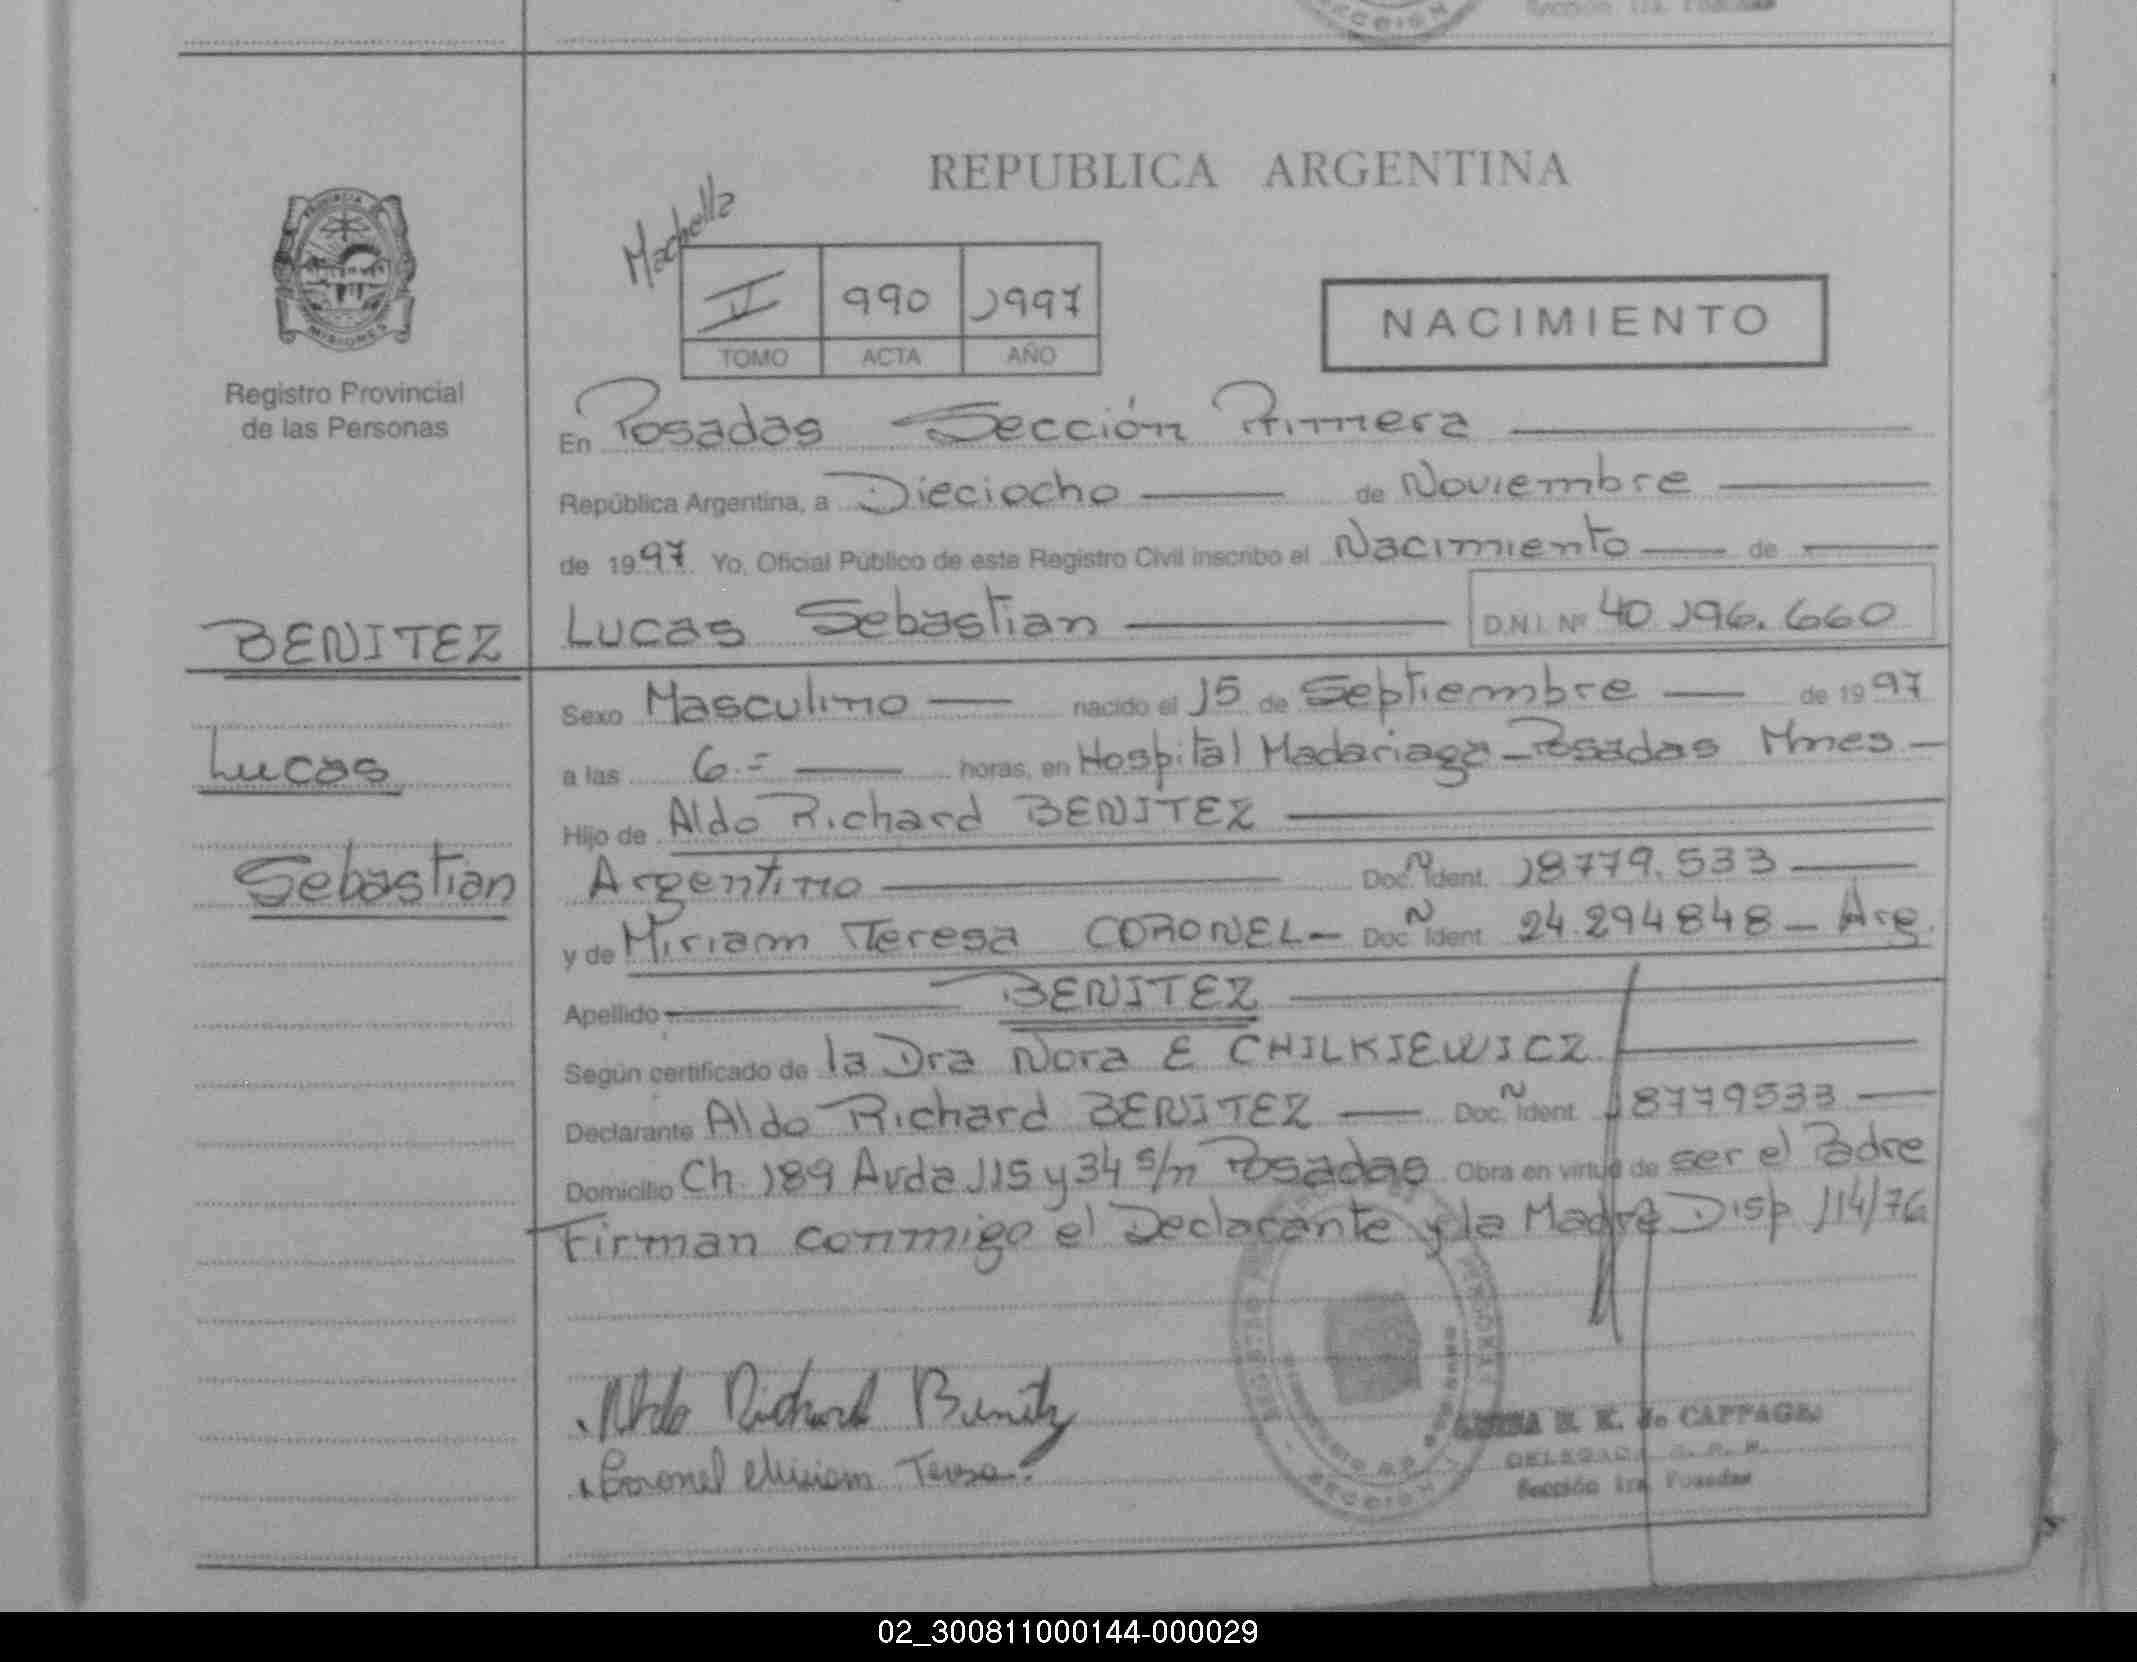 Sección 1ra. Posadas
REPUBLICA ARGENTINA
II 990 1997
TOMO ACTA AÑO
NACIMIENTO
PROVINCIA
MISIONES
Registro Provincial
de las Personas
En Posadas Sección Primera
República Argentina, a Dieciocho de Noviembre
de 1997 Yo, Oficial Público de este Registro Civil inscribo el Nacimiento de
BENITEZ Lucas Sebastian D.N.I. Nº 40.196.660
Sexo Masculino nacido el 15 de Septiembre de 1997
Lucas
a las 6.= horas, en Hospital Madariaga - Posadas Mnes -
Hijo de Aldo Richard BENITEZ
Sebastian
Argentino Doc. N Ident. 18779.533
y de Miriam Teresa CORONEL - Doc. N Ident. 24.294848 - Arg.
Apellido BENITEZ
Según certificado de la Dra Nora E CHILKIEWICZ
Declarante Aldo Richard BENITEZ Doc. N Ident. 18779533
Domicilio Ch. 189 Avda 115 y 34 s/n Posadas Obra en virtud de ser el Padre
Firman conmigo el Declarante y la Madre Disp 114/76
Aldo Richard Benitez
Coronel Miriam Teresa
de CAPPAGLI
DELEGADA
Sección 1ra. Posadas
SECCION
02_300811000144-000029